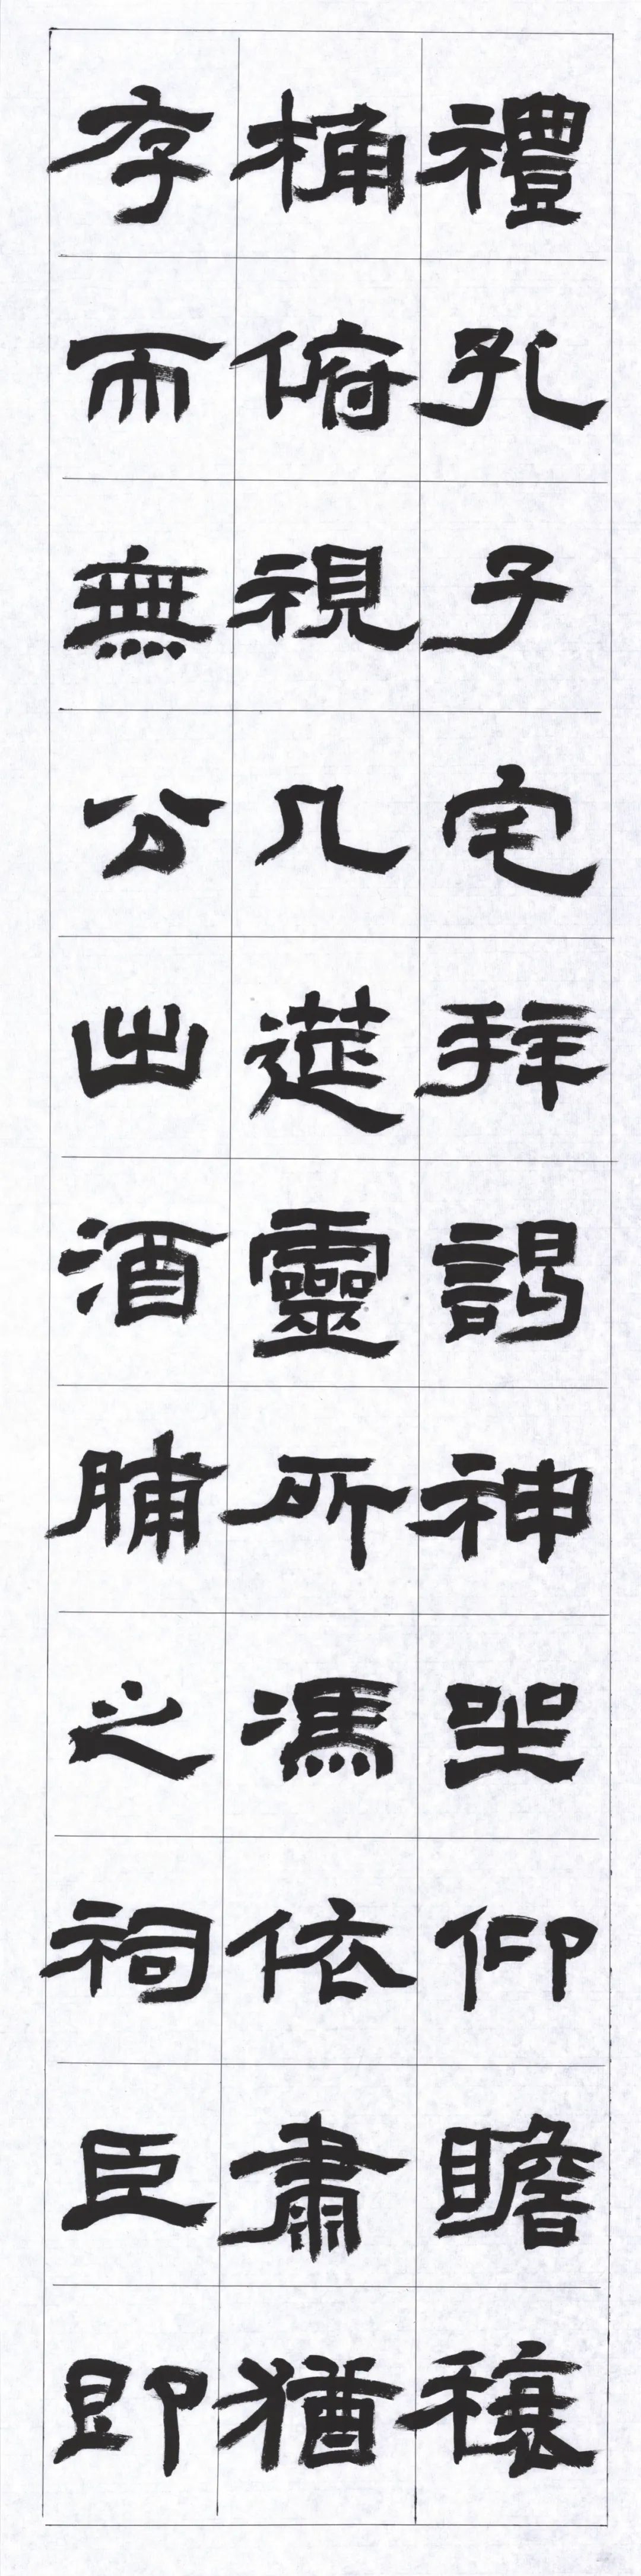 禮孔子宅拜謁神坐仰瞻榱
桷俯視几筵靈所馮依肅猶
存而無公出酒脯之祠臣即